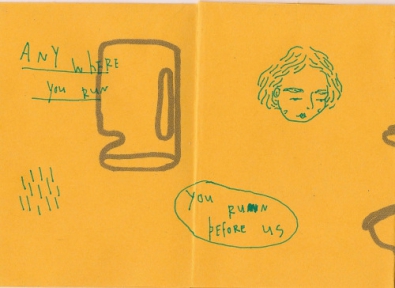 ANY WHERE
YOU RUN
YOU RUN
before US